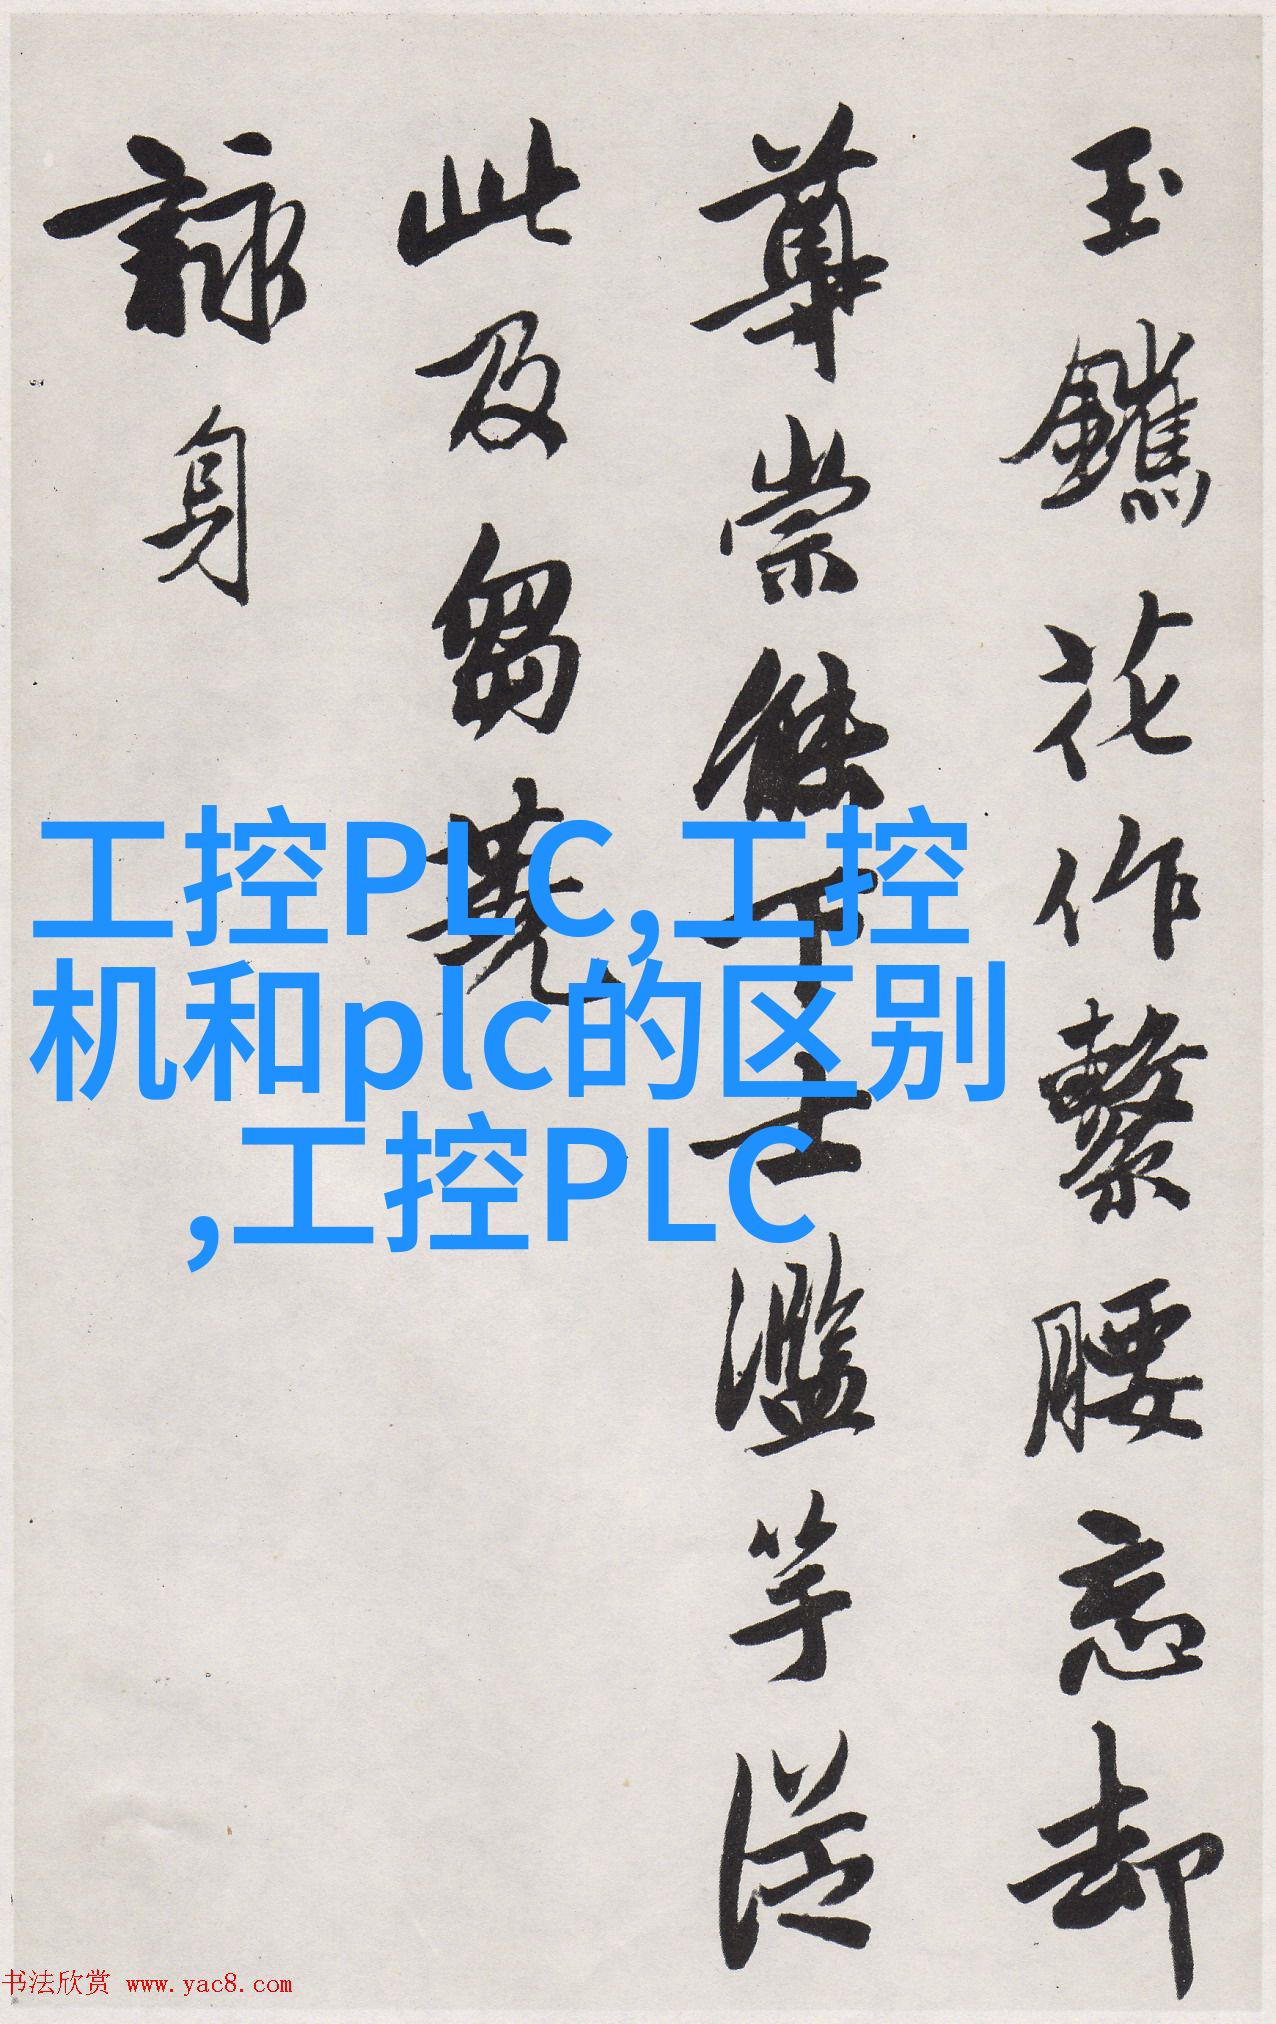 玉花作繫腰忘却
崇下士濫竽從
此及芻蕘
身
工控PLC,工控
机和plc的区别
,工控PLC
书法欣赏 www.yac8.com